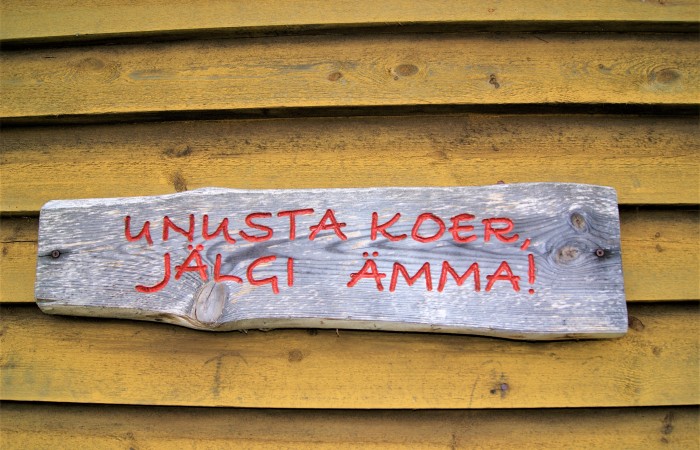 UNUSTA KOER,
JÄLGI ÄMMA!